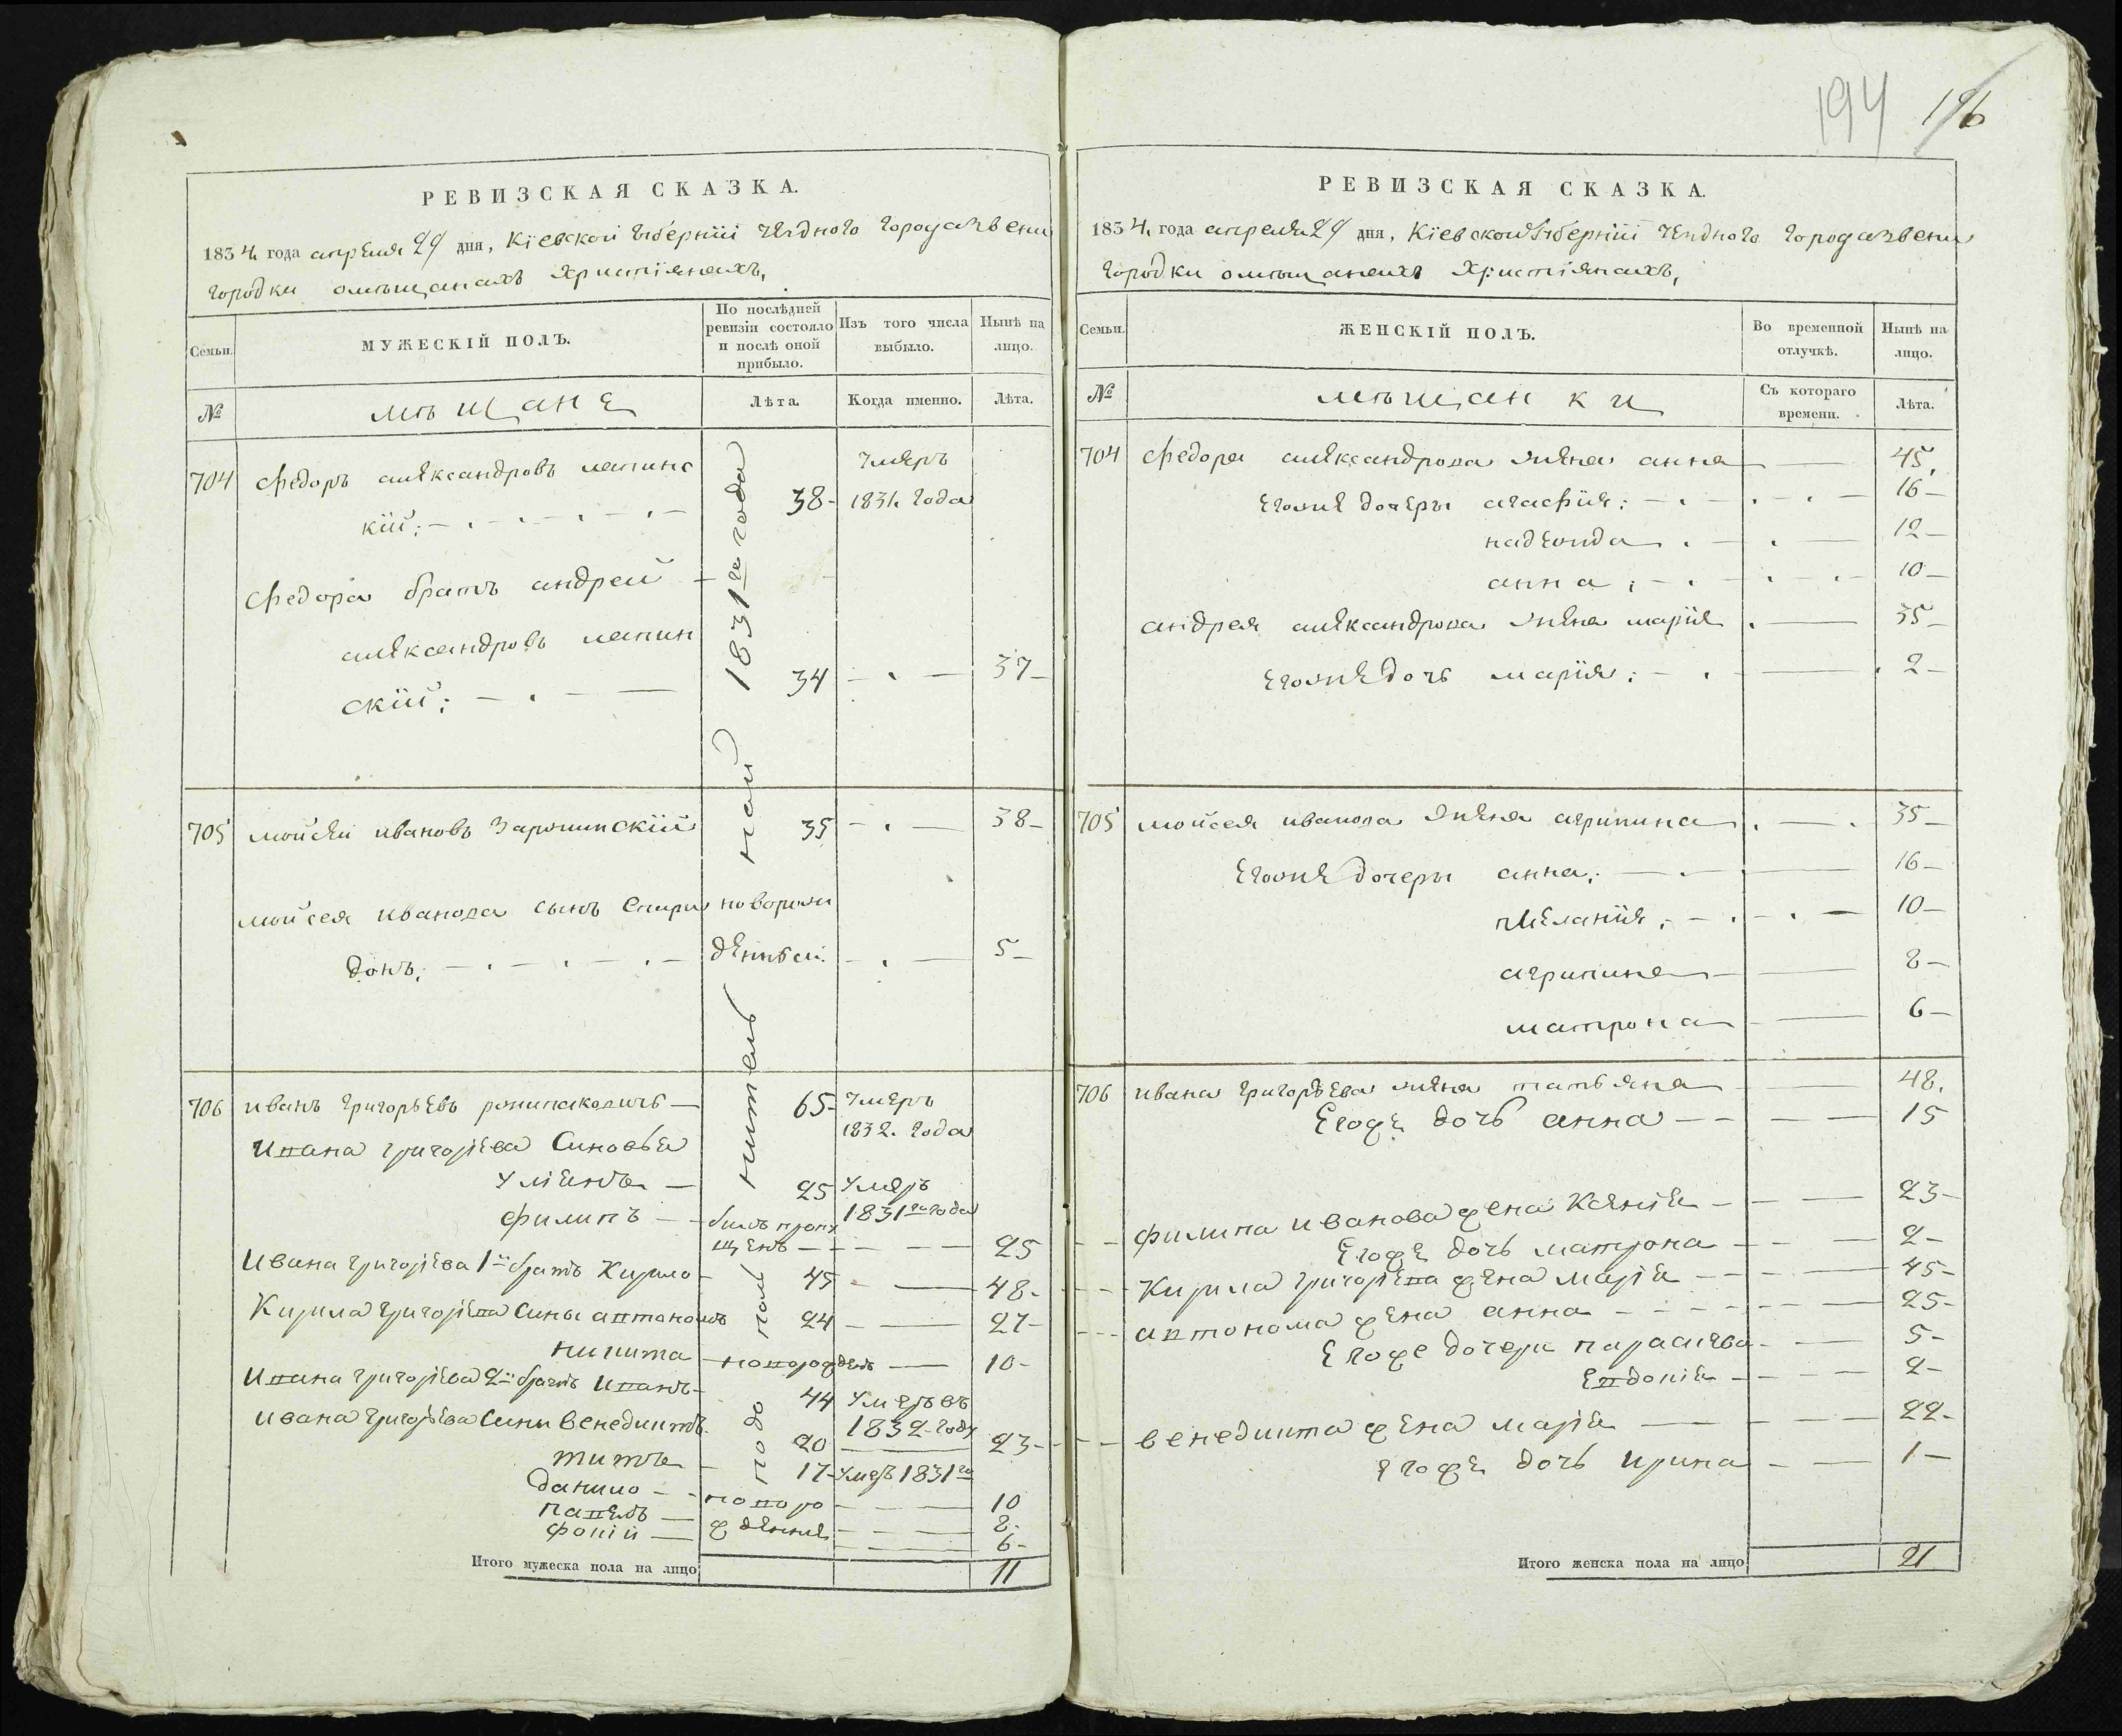 194 196
РЕВИЗСКАЯ СКАЗКА.
1834 года апреля 29 дня, Кіевской губерніи уездного города звени
городки омъщанахъ християнахъ,
Семьи.
МУЖЕСКІЙ ПОЛЪ.
По послѣдней ревизіи состояло и послѣ оной прибыло.
Изъ того числа выбыло.
Нынѣ на лицо.
№
мъщане
Лѣта.
Когда именно.
Лѣта.
704 Федоръ александровъ
кій: 38- умеръ 1831. года
Федора братъ андрей
александровъ
скій: 34 37-
705 мойсей ивановъ 35 38-
мойсея иванова сынъ Спири новорож
донъ: денный 5-
706 иванъ григорьевъ 65- умеръ
1832. года
Ивана григорьева Синовья
25 умеръ
филипъ билъ пропу 1831го года
щенъ 25
Ивана григорьева 1й братъ Кирило 45 48-
Кирила григорьева Сины автономъ 24 27-
никита новорожденъ 10-
Ивана григорьева 2й братъ Иванъ 44 умеръ въ
1832 году
ивана григорьева Сини венедиктъ 20 23-
титъ 17- умеръ 1831го
данило новоро 10
павелъ жденние 8-
фокій 6-
1831го года
Итого мужеска пола на лицо 11
РЕВИЗСКАЯ СКАЗКА.
1834 года апреля 29 дня, Кіевской губерніи уездного города звени
городки омъщанахъ християнахъ,
Семьи.
ЖЕНСКІЙ ПОЛЪ.
Во временной отлучкѣ.
Нынѣ на лицо.
№
мъщанки
Съ котораго времени.
Лѣта.
704 Федора александрова жена анна 45.
егоже дочеры агафія: 16-
надежда 12-
анна: 10-
андрея александрова жена марія 35-
егоже дочь марія: 2-
705 мойсея иванова жена агрипина 35-
егоже дочеры анна: 16-
меланія: 10-
агрипина 8-
матрона 6-
706 ивана григорьева жена татьяна 48.
Егоже дочь анна 15
филипа иванова жена Ксенія 23-
Егоже дочь матрона 2-
Кирила григорьева жена марія 45-
автонома жена анна 25-
Егоже дочери параскева 5-
Евдокія 2-
венедикта жена марія 22-
егоже дочь ирина 1-
Итого женска пола на лицо 21